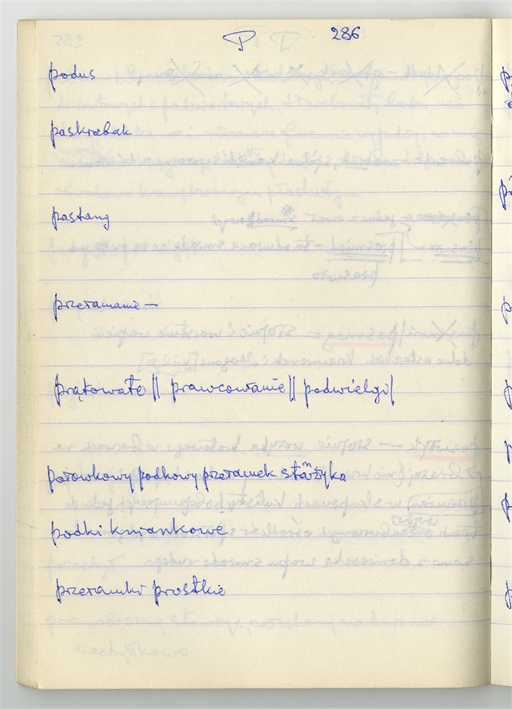 P 286
podus
paskrobak
pastang
przełamanie —
prątowate || prawcowanie || podwielgi|
połowkowy podkowy przełamek stańżyka
podki kniankowe
przełamki prostkie